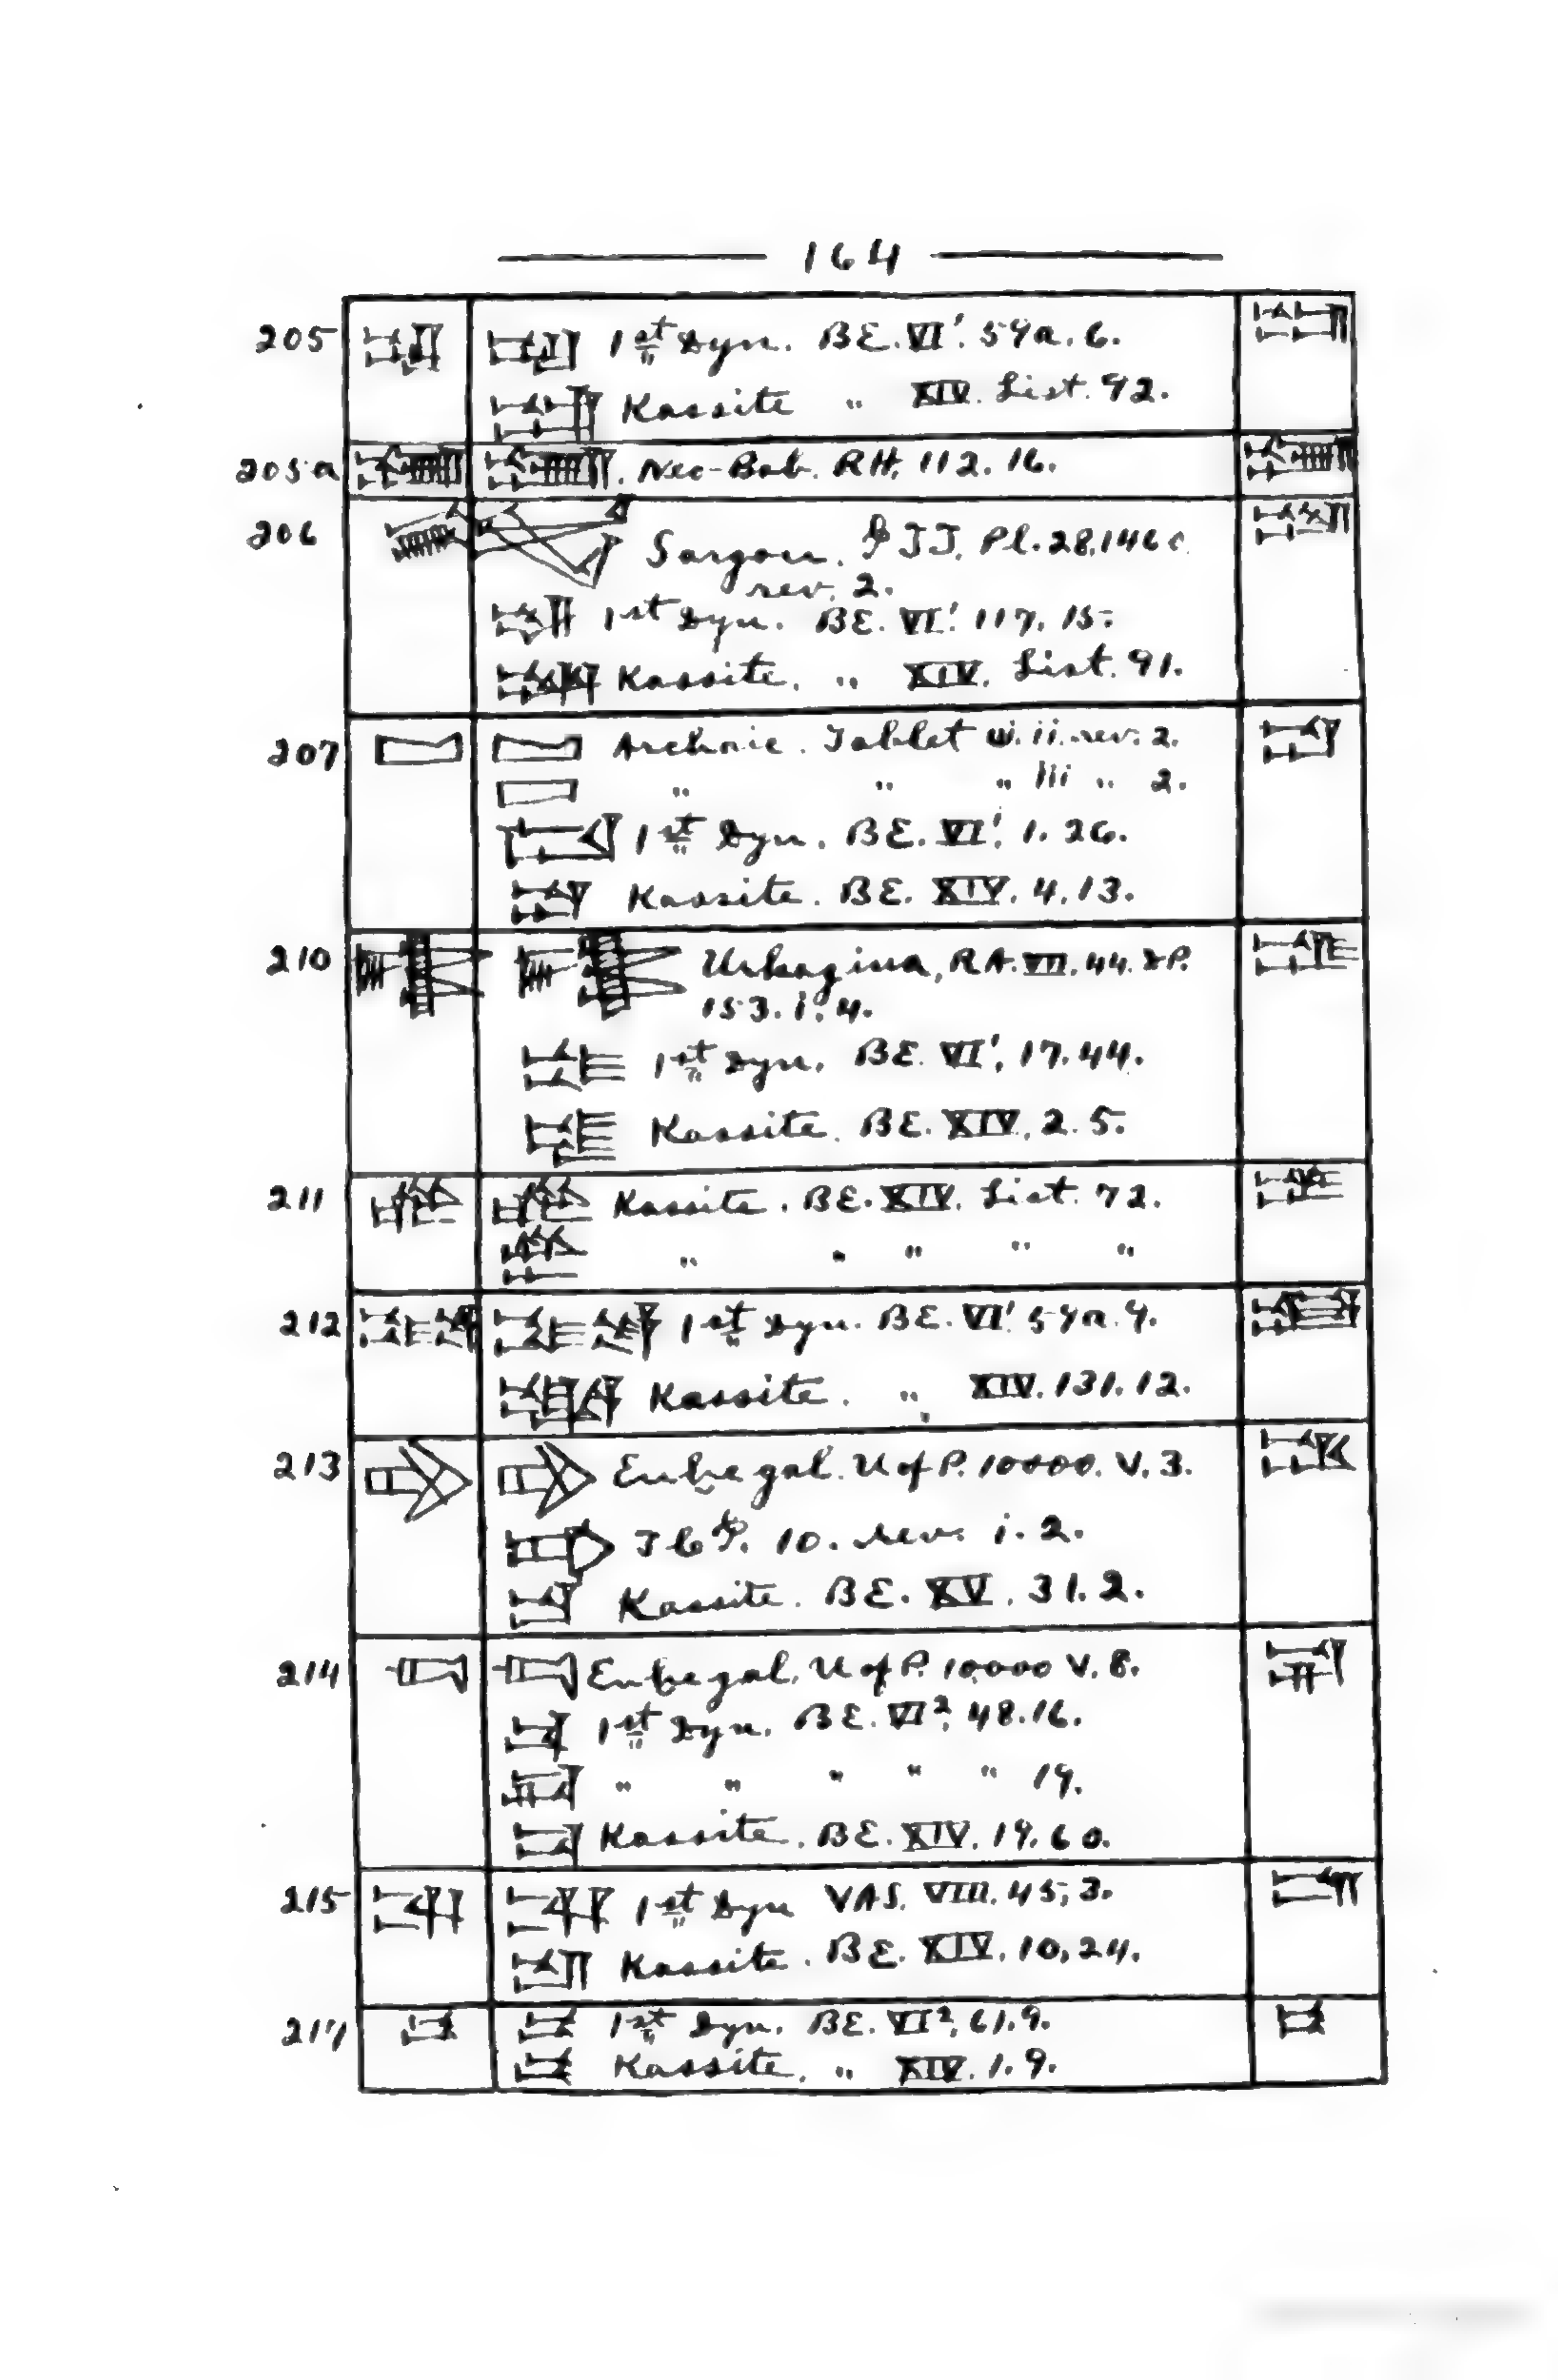 164
205 1st Dyn. BE. VI¹. 59a. 6.
Kassite " XIV. List. 92.
205a Neo-Bab. RH, 112. 16.
206 Sargon. Pl. 28, 146
rev. 2.
1st Dyn. BE. VI¹. 117, 15.
Kassite. " XIV. List. 91.
207 Archaic. Tablet ii. rev. 2.
" " " iii " 2.
1st Dyn. BE. VI¹, 1. 26.
Kassite. BE. XIV. 4, 13.
210 Urkagina, RA. VII. 44. DP.
153. i. 4.
1st Dyn. BE. VI¹, 17. 44.
Kassite. BE. XIV, 2. 5.
211 Kassite. BE. XIV. List. 72.
" " " " "
212 1st Dyn. BE. VI¹ 59a. 9.
Kassite. " XIV. 131. 12.
213 Enhegal. U of P. 10000. V. 3.
10. rev. i. 2.
Kassite. BE. XV. 31. 2.
214 Enhegal, U of P. 10000 V. 8.
1st Dyn. BE. VI², 48. 16.
" " " " " 19.
Kassite. BE. XIV. 19. 60.
215 1st Dyn VAS. VIII. 45, 3.
Kassite. BE. XIV. 10, 24.
217 1st Dyn. BE. VI², 61. 9.
Kassite. " XIV. 1. 9.